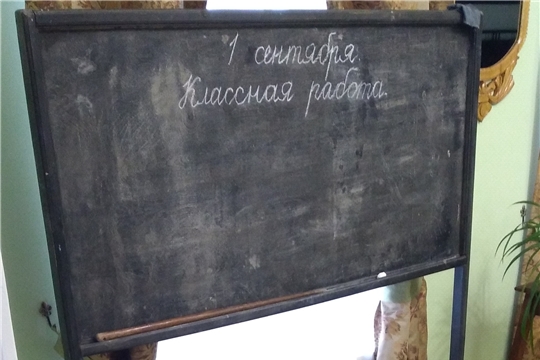 1 сентября.
Классная работа.